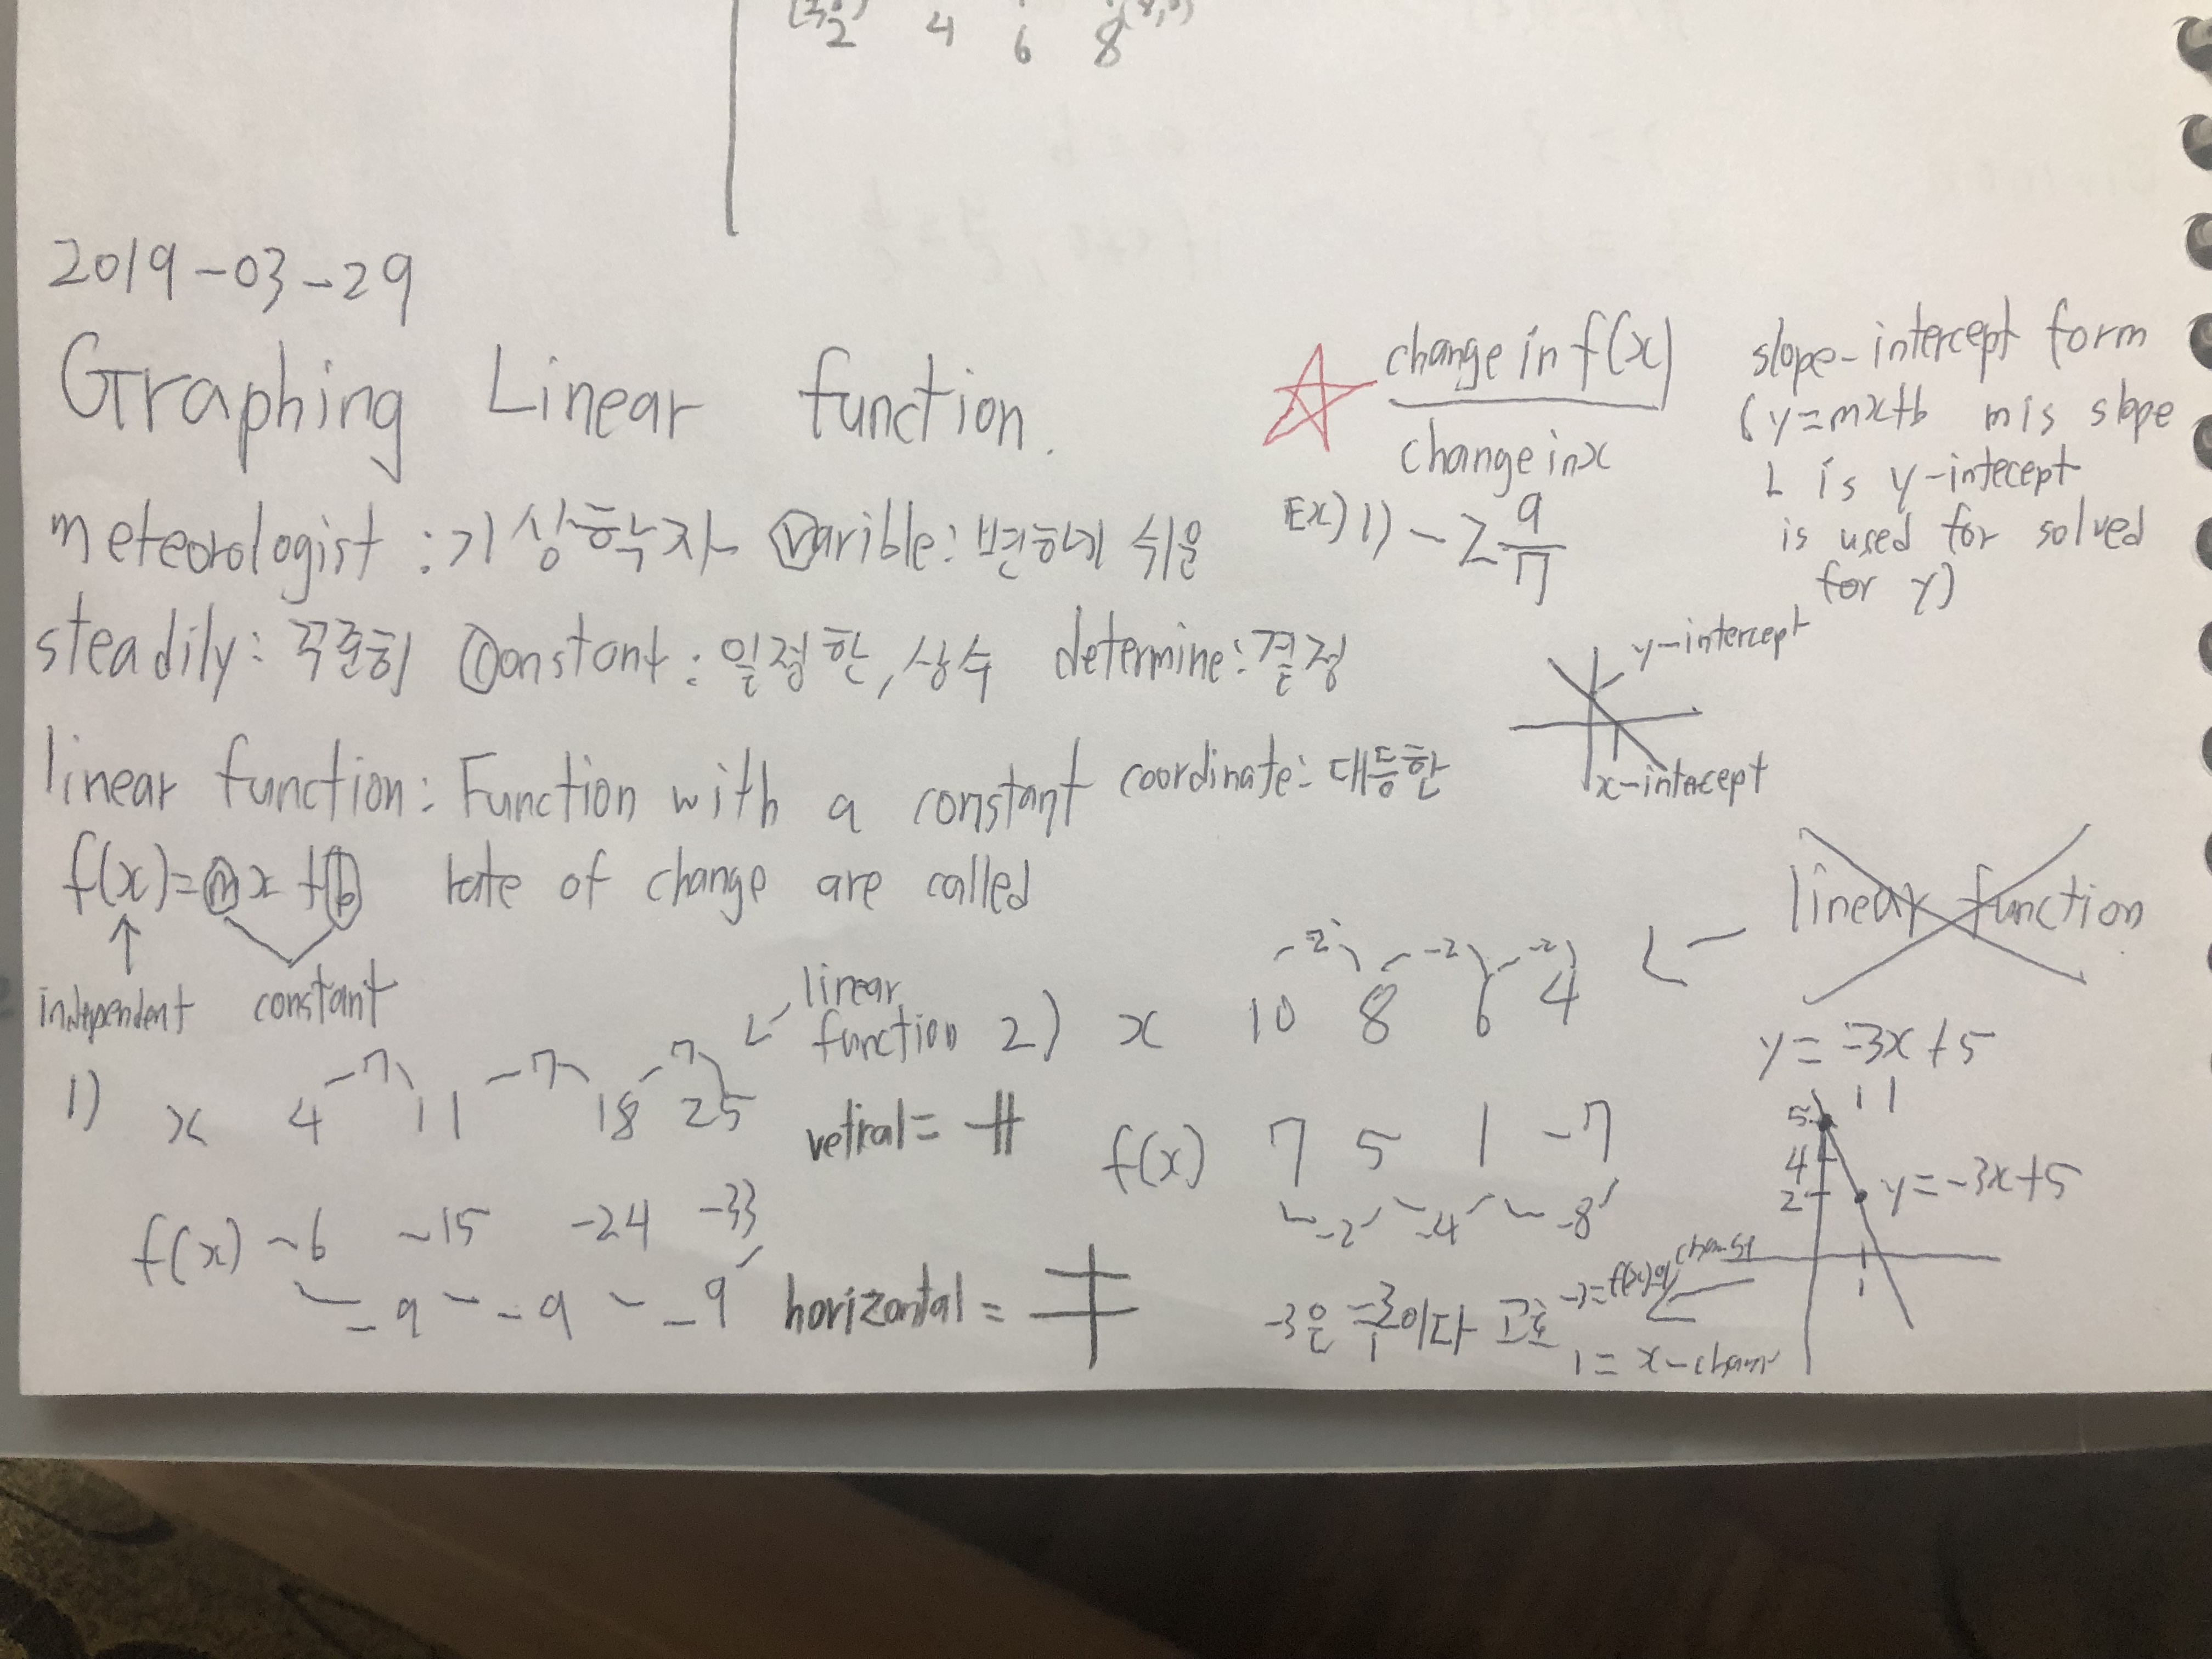 2 4 6 8
2019-03-29
Graphing Linear function.
meteorologist : 기상학자 Varible: 변하기 쉬운
steadily: 꾸준히 Constant: 일정한, 상수 determine: 결정
linear function: Function with a constant coordinate: 대등한
f(x)=mx+b rate of change are called
↑
independent constant
change in f(x)
change in x
Ex) 1) -
9
7
slope-intercept form
(y=mx+b m is slope
is y-intecept
is used for solved
for y)
y-intercept
x-intercept
1) 7 7 7 linear function
x 4 11 18 25
f(x) -6 -15 -24 -33
-9 -9 -9
horizontal =
2) -2 -2 -2 linear function
x 10 8 6 4
f(x) 7 5 1 -7
-2 -4 -8
y=-3x+5
5
4
2
y=-3x+5
1
-3은 이다 고로 -3=f(x)의
1= x-